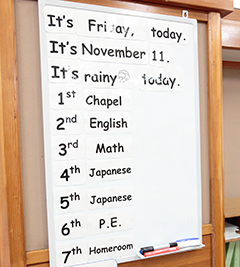 It's Friday, today.
It's November 11.
It's rainy today.
1st Chapel
2nd English
3rd Math
4th Japanese
5th Japanese
6th P.E.
7th Homeroom